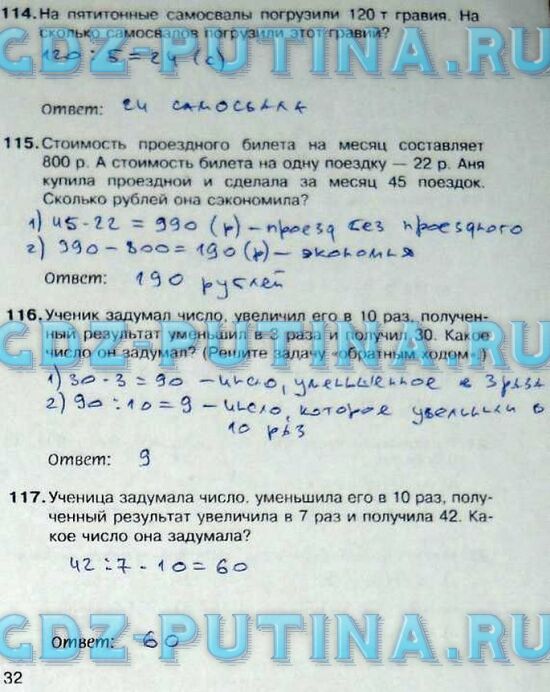 114. На пятитонные самосвалы погрузили 120 т гравия. На
сколько самосвалов погрузили этот гравий?
120 : 5 = 24 (с)
GDZ-PUTINA.RU
Ответ: 24 самосвала
115. Стоимость проездного билета на месяц составляет
800 р. А стоимость билета на одну поездку — 22 р. Аня
купила проездной и сделала за месяц 45 поездок.
Сколько рублей она сэкономила?
1) 45 · 22 = 990 (р) – проезд без проездного
2) 990 – 800 = 190 (р) – экономия
Ответ: 190 рублей
116. Ученик задумал число, увеличил его в 10 раз, получен-
ный результат уменьшил в 3 раза и получил 30. Какое
число он задумал? (Решите задачу «обратным ходом».)
GDZ-PUTINA.RU
1) 30 · 3 = 90 – число, уменьшенное в 3 раза
2) 90 : 10 = 9 – число, которое увеличили в
10 раз
Ответ: 9
117. Ученица задумала число, уменьшила его в 10 раз, полу-
ченный результат увеличила в 7 раз и получила 42. Ка-
кое число она задумала?
42 : 7 · 10 = 60
GDZ-PUTINA.RU
Ответ: 60
32